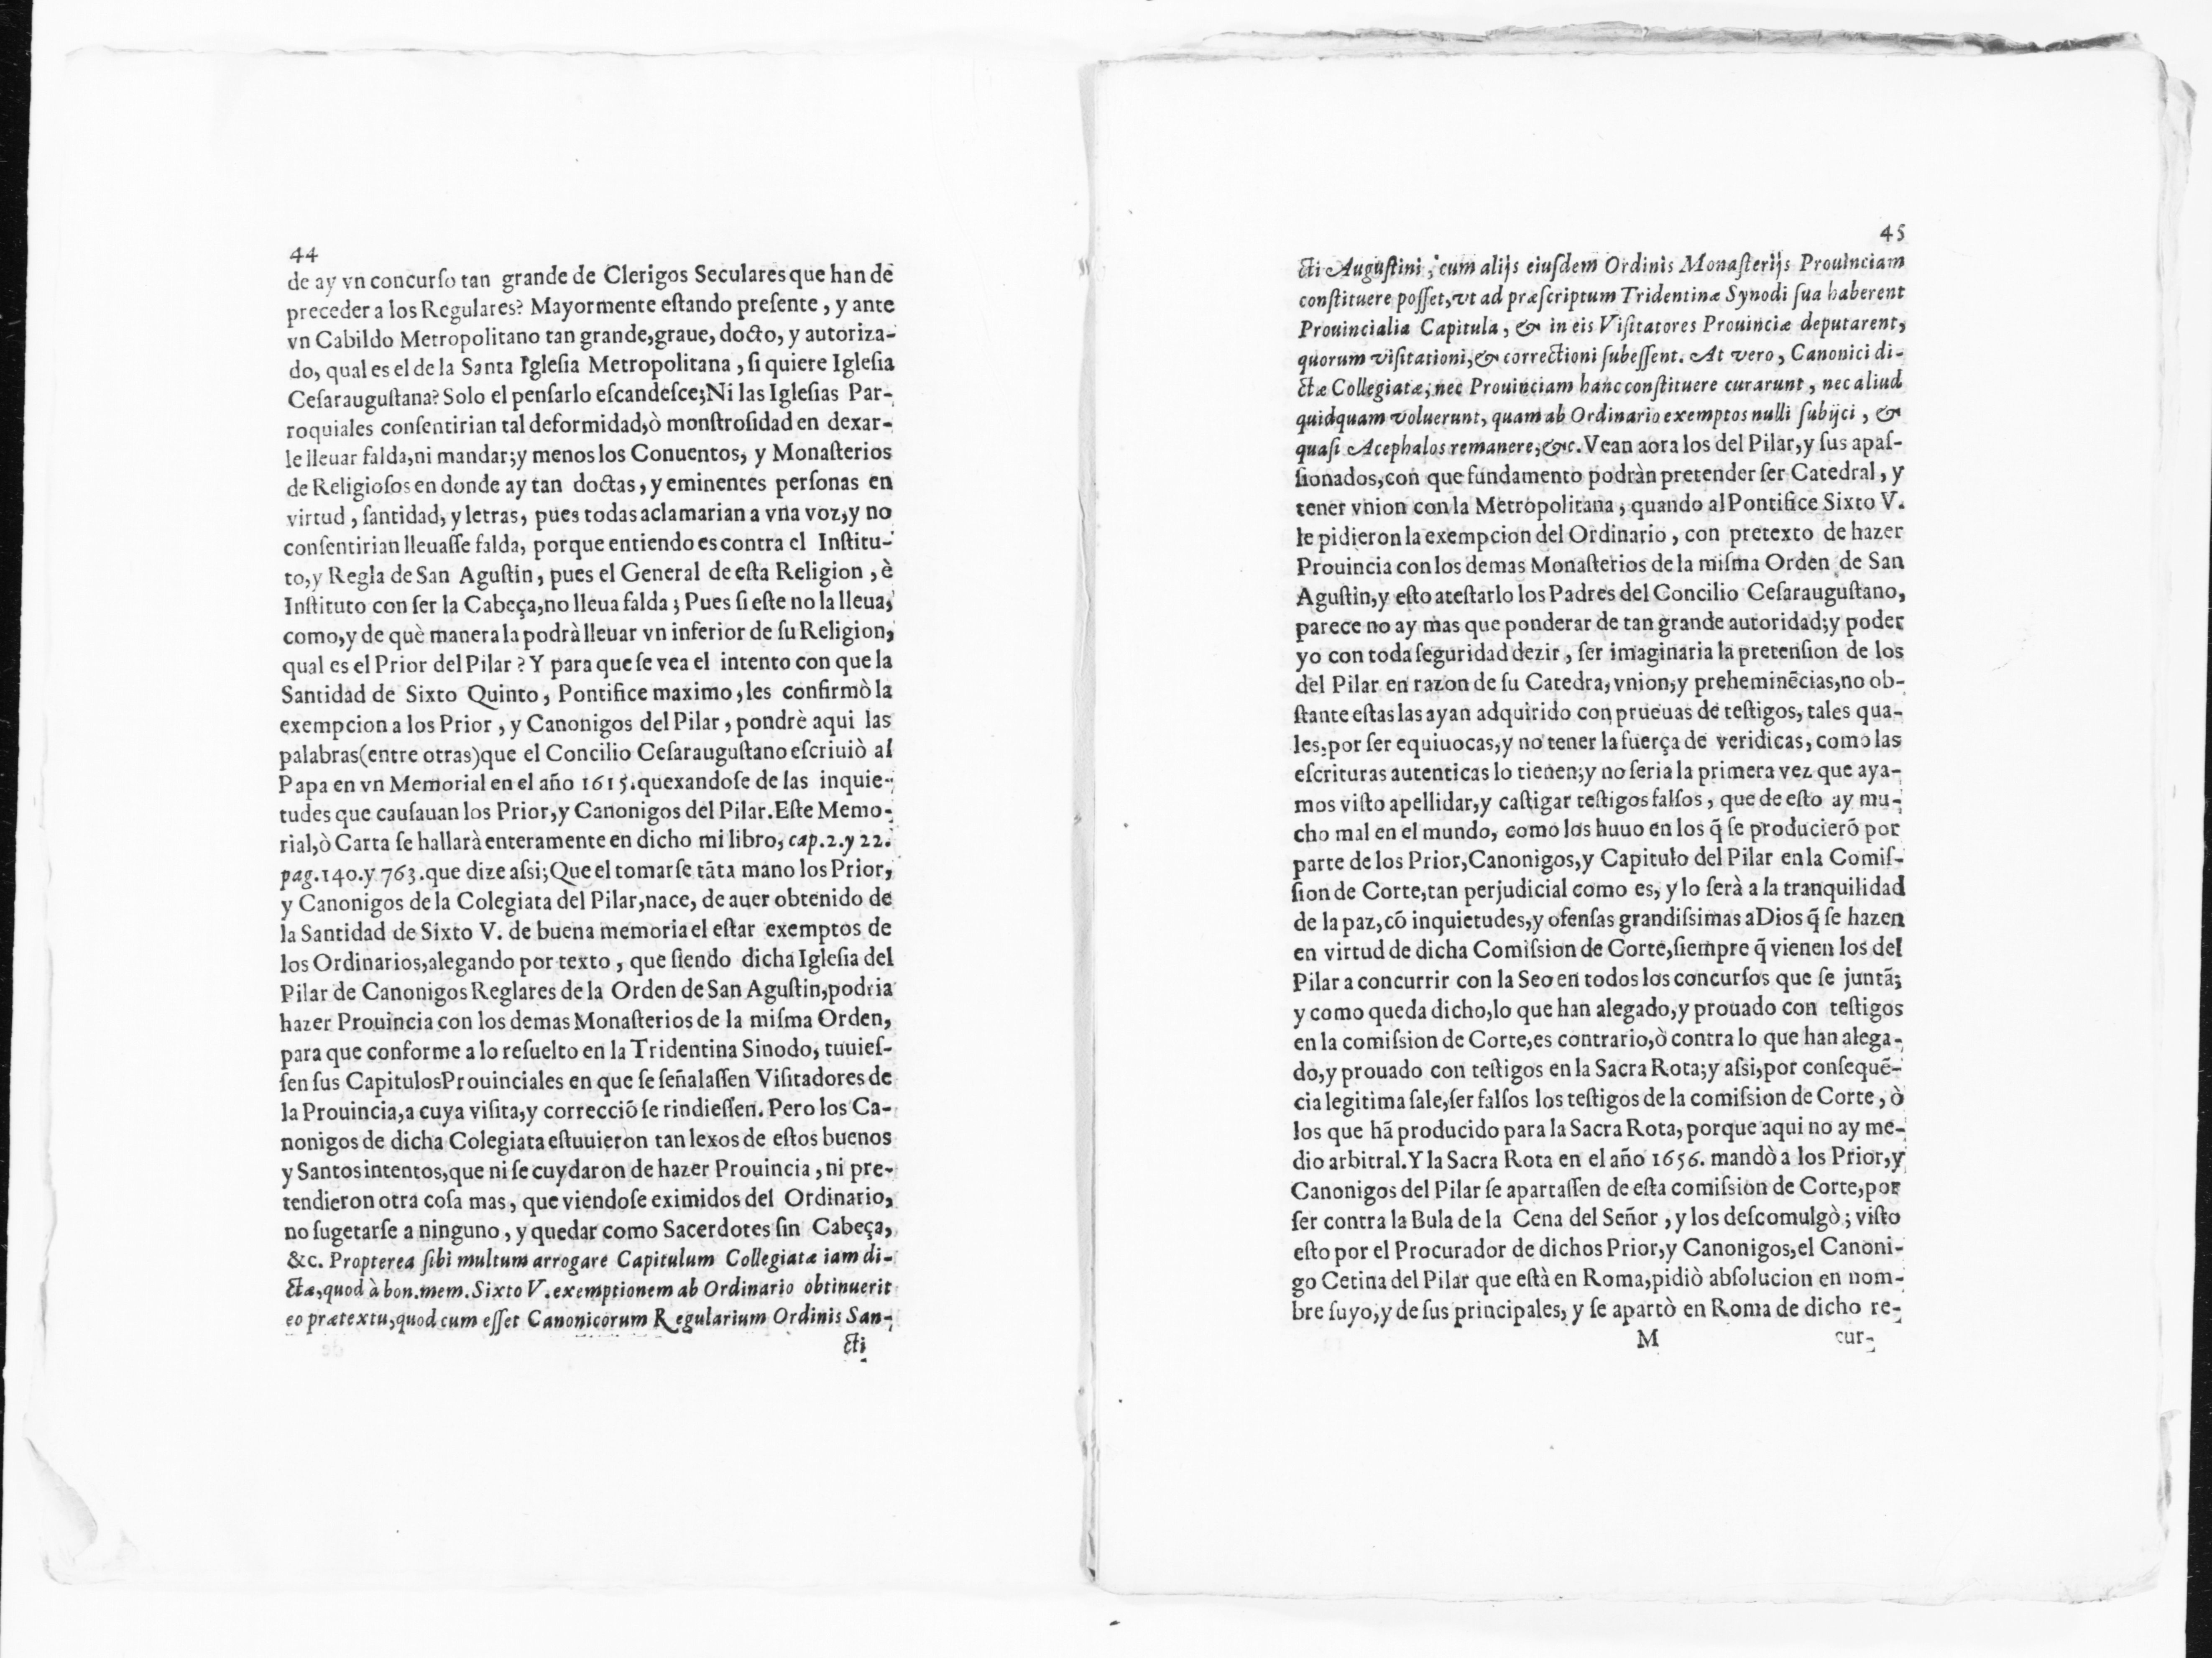 44
de ay vn concurſo tan grande de Clerigos Seculares que han de
preceder a los Regulares? Mayormente eſtando preſente, y ante
vn Cabildo Metropolitano tan grande,graue, docto, y autoriza-
do, qual es el de la Santa Igleſia Metropolitana, ſi quiere Igleſia
Ceſarauguſtana? Solo el penſarlo eſcandeſce;Ni las Igleſias Par-
roquiales conſentirian tal deformidad,ò monſtroſidad en dexar-
le lleuar falda,ni mandar;y menos los Conuentos, y Monaſterios
de Religioſos en donde ay tan doctas, y eminentes perſonas en
virtud, ſantidad, y letras, pues todas aclamarian a vna voz,y no
conſentirian lleuaſſe falda, porque entiendo es contra el Inſtitu-
to,y Regla de San Aguſtin, pues el General de eſta Religion, è
Inſtituto con ſer la Cabeça,no lleua falda; Pues ſi eſte no la lleua,
como,y de què manera la podrà lleuar vn inferior de ſu Religion,
qual es el Prior del Pilar? Y para que ſe vea el intento con que la
Santidad de Sixto Quinto, Pontifice maximo,les confirmò la
exempcion a los Prior, y Canonigos del Pilar, pondrè aqui las
palabras(entre otras)que el Concilio Ceſarauguſtano eſcriuiò al
Papa en vn Memorial en el año 1615.quexandoſe de las inquie-
tudes que cauſauan los Prior,y Canonigos del Pilar.Eſte Memo-
rial,ò Carta ſe hallarà enteramente en dicho mi libro, cap.2.y 22.
pag.140.y 763.que dize aſsi;Que el tomarſe tãta mano los Prior,
y Canonigos de la Colegiata del Pilar,nace, de auer obtenido de
la Santidad de Sixto V. de buena memoria el eſtar exemptos de
los Ordinarios,alegando por texto, que ſiendo dicha Igleſia del
Pilar de Canonigos Reglares de la Orden de San Aguſtin,podria
hazer Prouincia con los demas Monaſterios de la miſma Orden,
para que conforme a lo reſuelto en la Tridentina Sinodo, tuuieſ-
ſen ſus CapitulosProuinciales en que ſe ſeñalaſſen Viſitadores de
la Prouincia,a cuya viſita,y correcciõ ſe rindieſſen. Pero los Ca-
nonigos de dicha Colegiata eſtuuieron tan lexos de eſtos buenos
y Santos intentos,que ni ſe cuydaron de hazer Prouincia, ni pre-
tendieron otra coſa mas, que viendoſe eximidos del Ordinario,
no ſugetarſe a ninguno, y quedar como Sacerdotes ſin Cabeça,
&c. Propterea ſibi multum arrogare Capitulum Collegiatæ iam di-
ctæ,quod à bon.mem.Sixto V.exemptionem ab Ordinario obtinuerit
eo prætextu,quod cum eſſet Canonicorum Regularium Ordinis San-
cti
45
cti Auguſtini, cum alijs eiuſdem Ordinis Monaſterijs Prouinciam
conſtituere poſſet,vt ad præſcriptum Tridentinæ Synodi ſua haberent
Prouincialia Capitula, & in eis Viſitatores Prouinciæ deputarent,
quorum viſitationi,& correctioni ſubeſſent. At vero, Canonici di-
ctæ Collegiatæ, nec Prouinciam hanc conſtituere curarunt, nec aliud
quidquam voluerunt, quam ab Ordinario exemptos nulli ſubijci, &
quaſi Acephalos remanere,&c.Vean aora los del Pilar,y ſus apaſ-
ſionados,con que fundamento podràn pretender ſer Catedral, y
tener vnion con la Metropolitana, quando al Pontifice Sixto V.
le pidieron la exempcion del Ordinario, con pretexto de hazer
Prouincia con los demas Monaſterios de la miſma Orden de San
Aguſtin,y eſto ateſtarlo los Padres del Concilio Ceſarauguſtano,
parece no ay mas que ponderar de tan grande autoridad;y poder
yo con toda ſeguridad dezir, ſer imaginaria la pretenſion de los
del Pilar en razon de ſu Catedra, vnion,y preheminẽcias,no ob-
ſtante eſtas las ayan adquirido con prueuas de teſtigos, tales qua-
les,por ſer equiuocas,y no tener la fuerça de veridicas, como las
eſcrituras autenticas lo tienen;y no ſeria la primera vez que aya-
mos viſto apellidar,y caſtigar teſtigos falſos, que de eſto ay mu-
cho mal en el mundo, como los huuo en los q̃ ſe producierõ por
parte de los Prior,Canonigos,y Capitulo del Pilar en la Comiſ-
ſion de Corte,tan perjudicial como es, y lo ſerà a la tranquilidad
de la paz,cõ inquietudes,y ofenſas grandiſsimas aDios q̃ ſe hazen
en virtud de dicha Comiſsion de Corte,ſiempre q̃ vienen los del
Pilar a concurrir con la Seo en todos los concurſos que ſe juntã;
y como queda dicho,lo que han alegado,y prouado con teſtigos
en la comiſsion de Corte,es contrario,ò contra lo que han alega-
do,y prouado con teſtigos en la Sacra Rota;y aſsi,por conſequẽ-
cia legitima ſale,ſer falſos los teſtigos de la comiſsion de Corte, ò
los que hã producido para la Sacra Rota, porque aqui no ay me-
dio arbitral.Y la Sacra Rota en el año 1656. mandò a los Prior,y
Canonigos del Pilar ſe apartaſſen de eſta comiſsion de Corte,por
ſer contra la Bula de la Cena del Señor, y los deſcomulgò; viſto
eſto por el Procurador de dichos Prior,y Canonigos,el Canoni-
go Cetina del Pilar que eſtà en Roma,pidiò abſolucion en nom-
bre ſuyo,y de ſus principales, y ſe apartò en Roma de dicho re-
M cur-